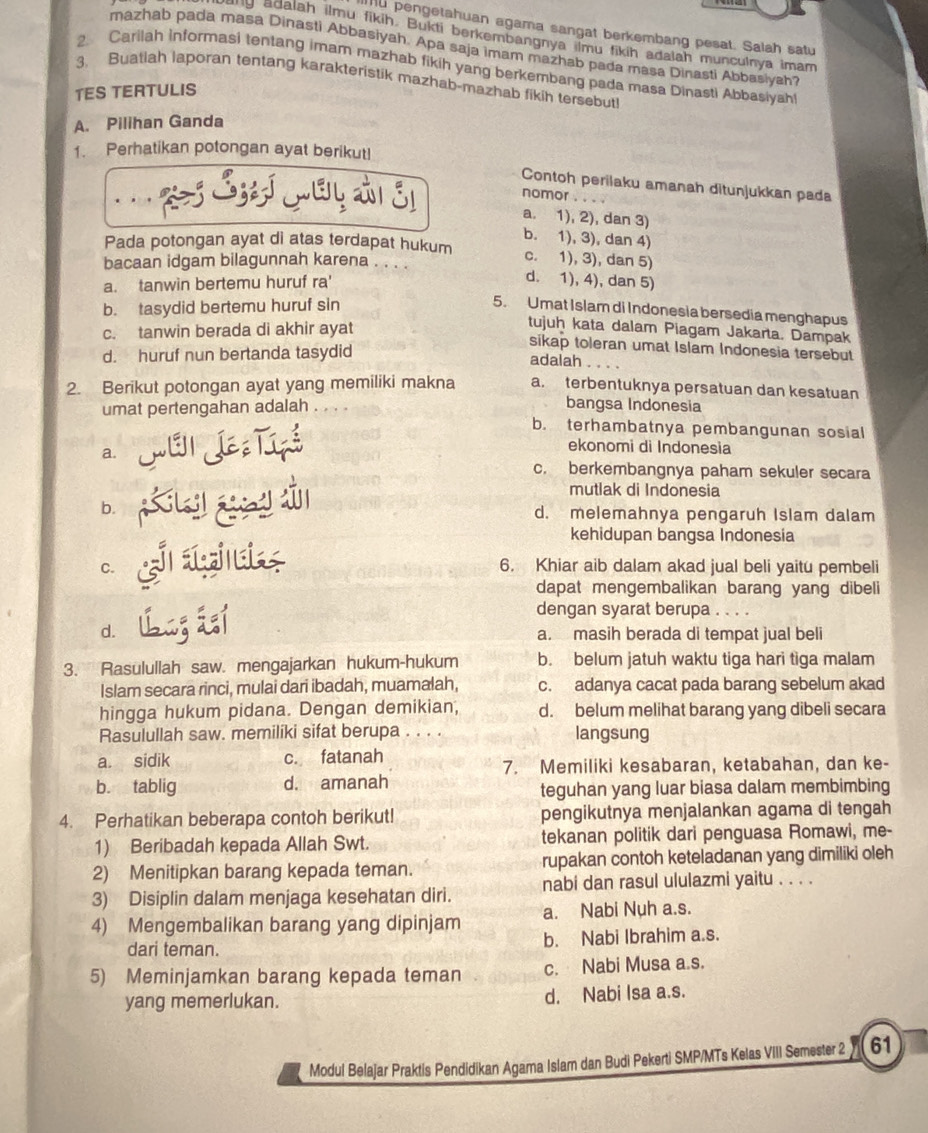 adalah ilmu fikih. Bukti berkembangnya ilmu fikih adalah munculnya imam
pengetahuan agama sangat berkembang pesat. Salah satu
mazhab pada masa Dinasti Abbasiyah. Apa saja imam mazhab pada masa Dinasti Abbasiyah?
2. Carilah informasi tentang imam mazhab fikih yang berkembang pada masa Dinasti Abbasiyah!
3. Buatlah laporan tentang karakteristik mazhab-mazhab fikih tersebut!
TES TERTULIS
A. Pilihan Ganda
1. Perhatikan potongan ayat berikut!
اِنَّ اللّٰهَ بِالنَّاسِ لَرَءُوْفٌ رَّحِيْمٌ . . .
Pada potongan ayat di atas terdapat hukum
bacaan idgam bilagunnah karena . . . .
a. tanwin bertemu huruf ra'
b. tasydid bertemu huruf sin
c. tanwin berada di akhir ayat
d. huruf nun bertanda tasydid
2. Berikut potongan ayat yang memiliki makna
umat pertengahan adalah . . . .
a. شُهَدَآءَ عَلَى النَّاسِ
b. اللّٰهُ لِيُضِيْعَ اِيْمَانَكُمْ
c. جَعَلْنَا الْقِبْلَةَ الَّتِيْ
d. اُمَّةً وَّسَطًا
3. Rasulullah saw. mengajarkan hukum-hukum
Islam secara rinci, mulai dari ibadah, muamalah,
hingga hukum pidana. Dengan demikian,
Rasulullah saw. memiliki sifat berupa . . . .
a. sidik c. fatanah
b. tablig d. amanah
4. Perhatikan beberapa contoh berikut!
1) Beribadah kepada Allah Swt.
2) Menitipkan barang kepada teman.
3) Disiplin dalam menjaga kesehatan diri.
4) Mengembalikan barang yang dipinjam
dari teman.
5) Meminjamkan barang kepada teman
yang memerlukan.
Contoh perilaku amanah ditunjukkan pada
nomor . . . .
a. 1), 2), dan 3)
b. 1), 3), dan 4)
c. 1), 3), dan 5)
d. 1), 4), dan 5)
5. Umat Islam di Indonesia bersedia menghapus
tujuh kata dalam Piagam Jakarta. Dampak
sikap toleran umat Islam Indonesia tersebut
adalah . . . .
a. terbentuknya persatuan dan kesatuan
bangsa Indonesia
b. terhambatnya pembangunan sosial
ekonomi di Indonesia
c. berkembangnya paham sekuler secara
mutlak di Indonesia
d. melemahnya pengaruh Islam dalam
kehidupan bangsa Indonesia
6. Khiar aib dalam akad jual beli yaitu pembeli
dapat mengembalikan barang yang dibeli
dengan syarat berupa . . . .
a. masih berada di tempat jual beli
b. belum jatuh waktu tiga hari tiga malam
c. adanya cacat pada barang sebelum akad
d. belum melihat barang yang dibeli secara
langsung
7. Memiliki kesabaran, ketabahan, dan ke-
teguhan yang luar biasa dalam membimbing
pengikutnya menjalankan agama di tengah
tekanan politik dari penguasa Romawi, me-
rupakan contoh keteladanan yang dimiliki oleh
nabi dan rasul ululazmi yaitu . . . .
a. Nabi Nuh a.s.
b. Nabi Ibrahim a.s.
c. Nabi Musa a.s.
d. Nabi Isa a.s.
Modul Belajar Praktis Pendidikan Agama Islam dan Budi Pekerti SMP/MTs Kelas VIII Semester 2 61